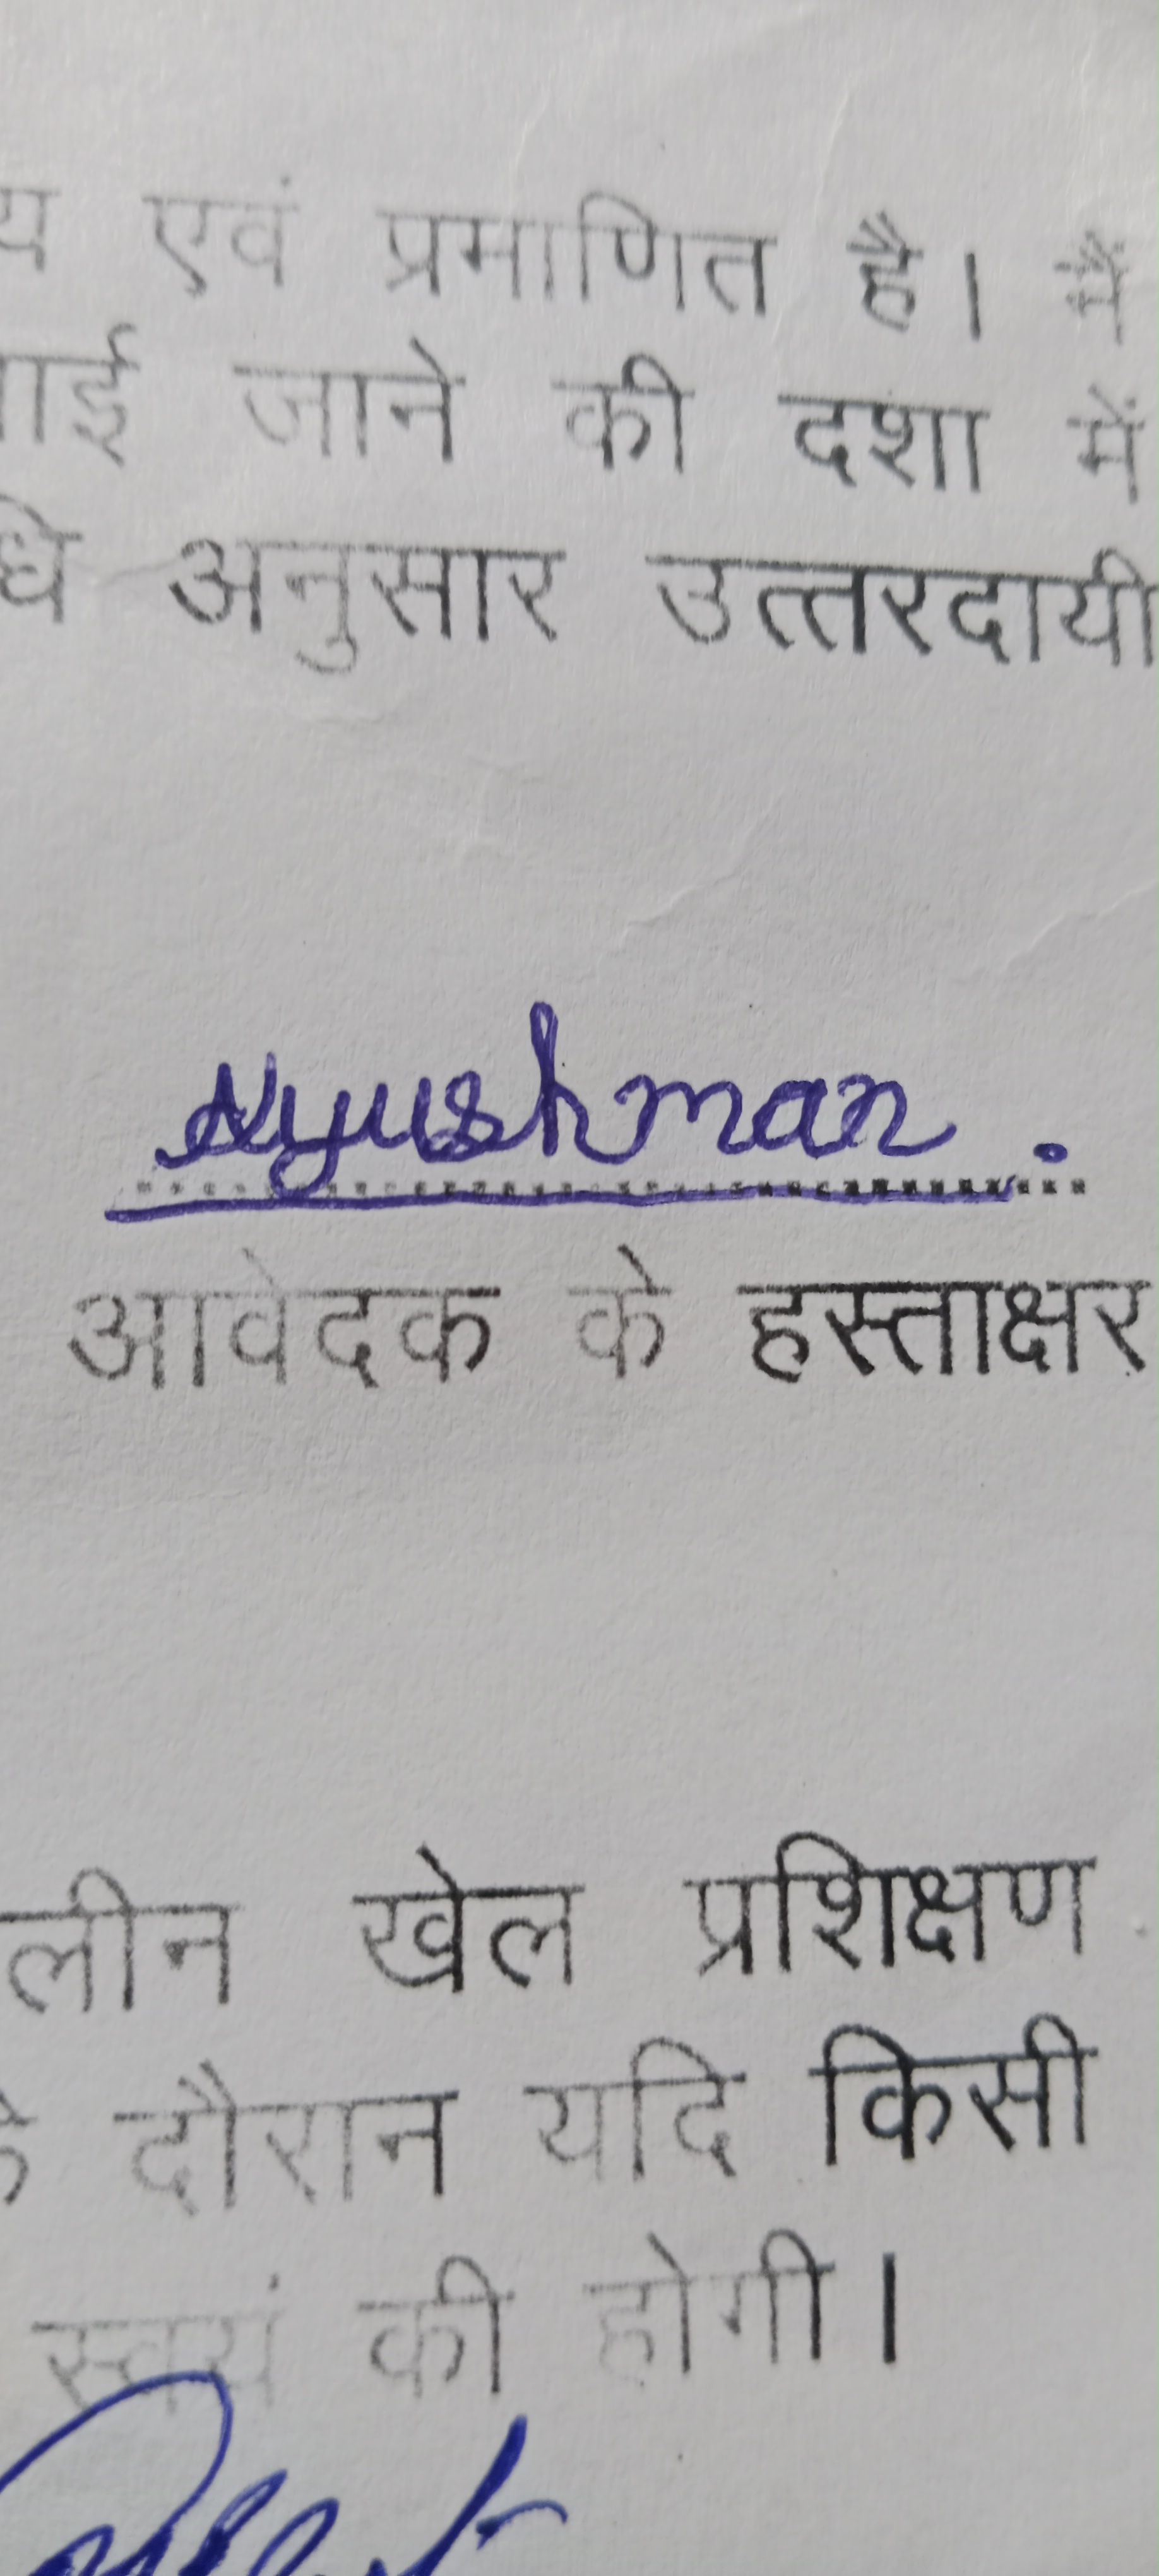 य एवं प्रमाणित है। मैं
ाई जाने की दशा में
धि अनुसार उत्तरदायी
Ayushman.
आवेदक के हस्ताक्षर
लीन खेल प्रशिक्षण
दौरान यदि किसी
स्वयं की होगी।